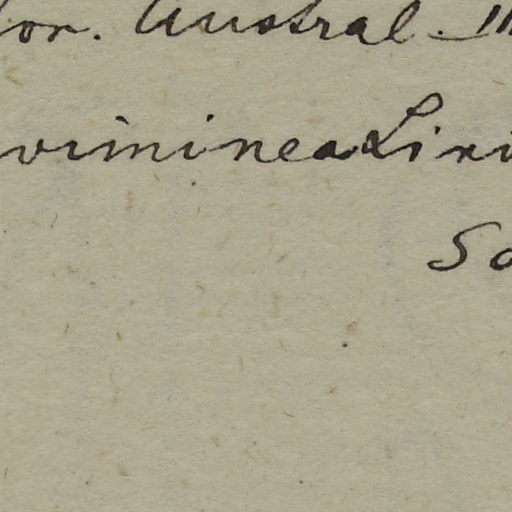 lor. Austral. III
viminea Lin
So